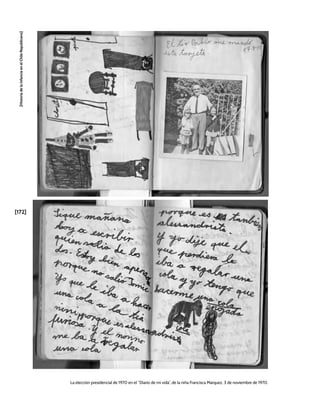 [Historia de la Infancia en el Chile Republicano]
El tio Pablo me mandó
esta tarjeta.
[172]
Sigue mañana
boy a escribir
quien salio de los
dos. Estoy bien apena
porque no salio Tomic
Yo que le iba a hacer
una cola a la tia
nini, porque es alessandrista
furiosa. Y el nonno
me iba a regalar
una cola
porque es tambien
alessandrista.
Y yo dije que el
que perdiera le
iba a regalar una
cola y yo tengo que
hacerme una cola
La elección presidencial de 1970 en el "Diario de mi vida", de la niña Francisca Márquez. 3 de noviembre de 1970.